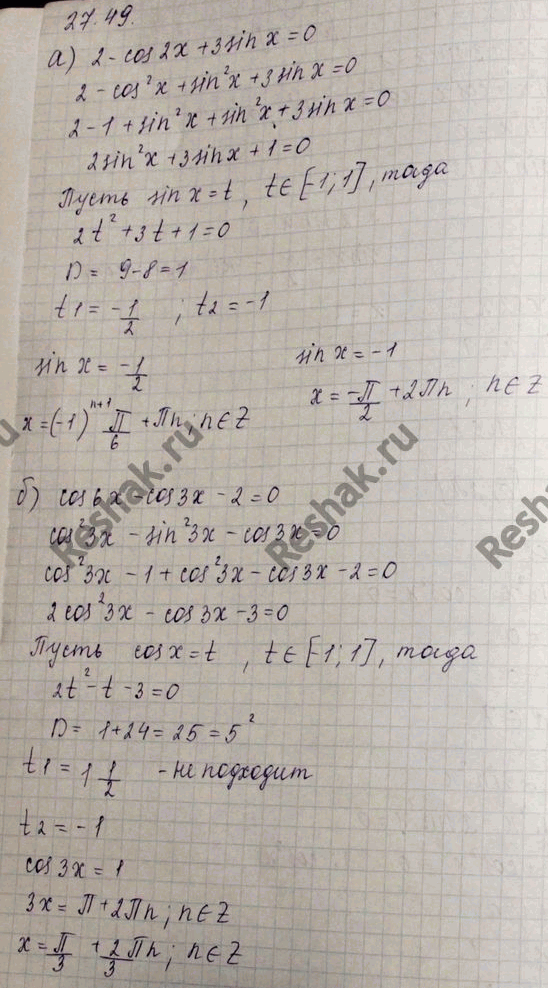 27.49.
а) 2 - cos 2x + 3 sin x = 0
2 - cos²x + sin²x + 3 sin x = 0
2 - 1 + sin²x + sin²x + 3 sin x = 0
2 sin²x + 3 sin x + 1 = 0
Пусть sin x = t, t ∈ [-1; 1], тогда
2t² + 3t + 1 = 0
D = 9 - 8 = 1
t1 = -1/2 ; t2 = -1
sin x = -1/2 sin x = -1
x = (-1)ⁿ⁺¹ π/6 + πn; n ∈ Z x = -π/2 + 2πn; n ∈ Z
б) cos 6x - cos 3x - 2 = 0
cos²3x - sin²3x - cos 3x = 0
cos²3x - 1 + cos²3x - cos 3x - 2 = 0
2 cos²3x - cos 3x - 3 = 0
Пусть cos x = t, t ∈ [-1; 1], тогда
2t² - t - 3 = 0
D = 1 + 24 = 25 = 5²
t1 = 1 1/2 - не подходит
t2 = -1
cos 3x = 1
3x = π + 2πn; n ∈ Z
x = π/3 + 2/3 πn; n ∈ Z
Reshak.ru
Reshak.ru
Reshak